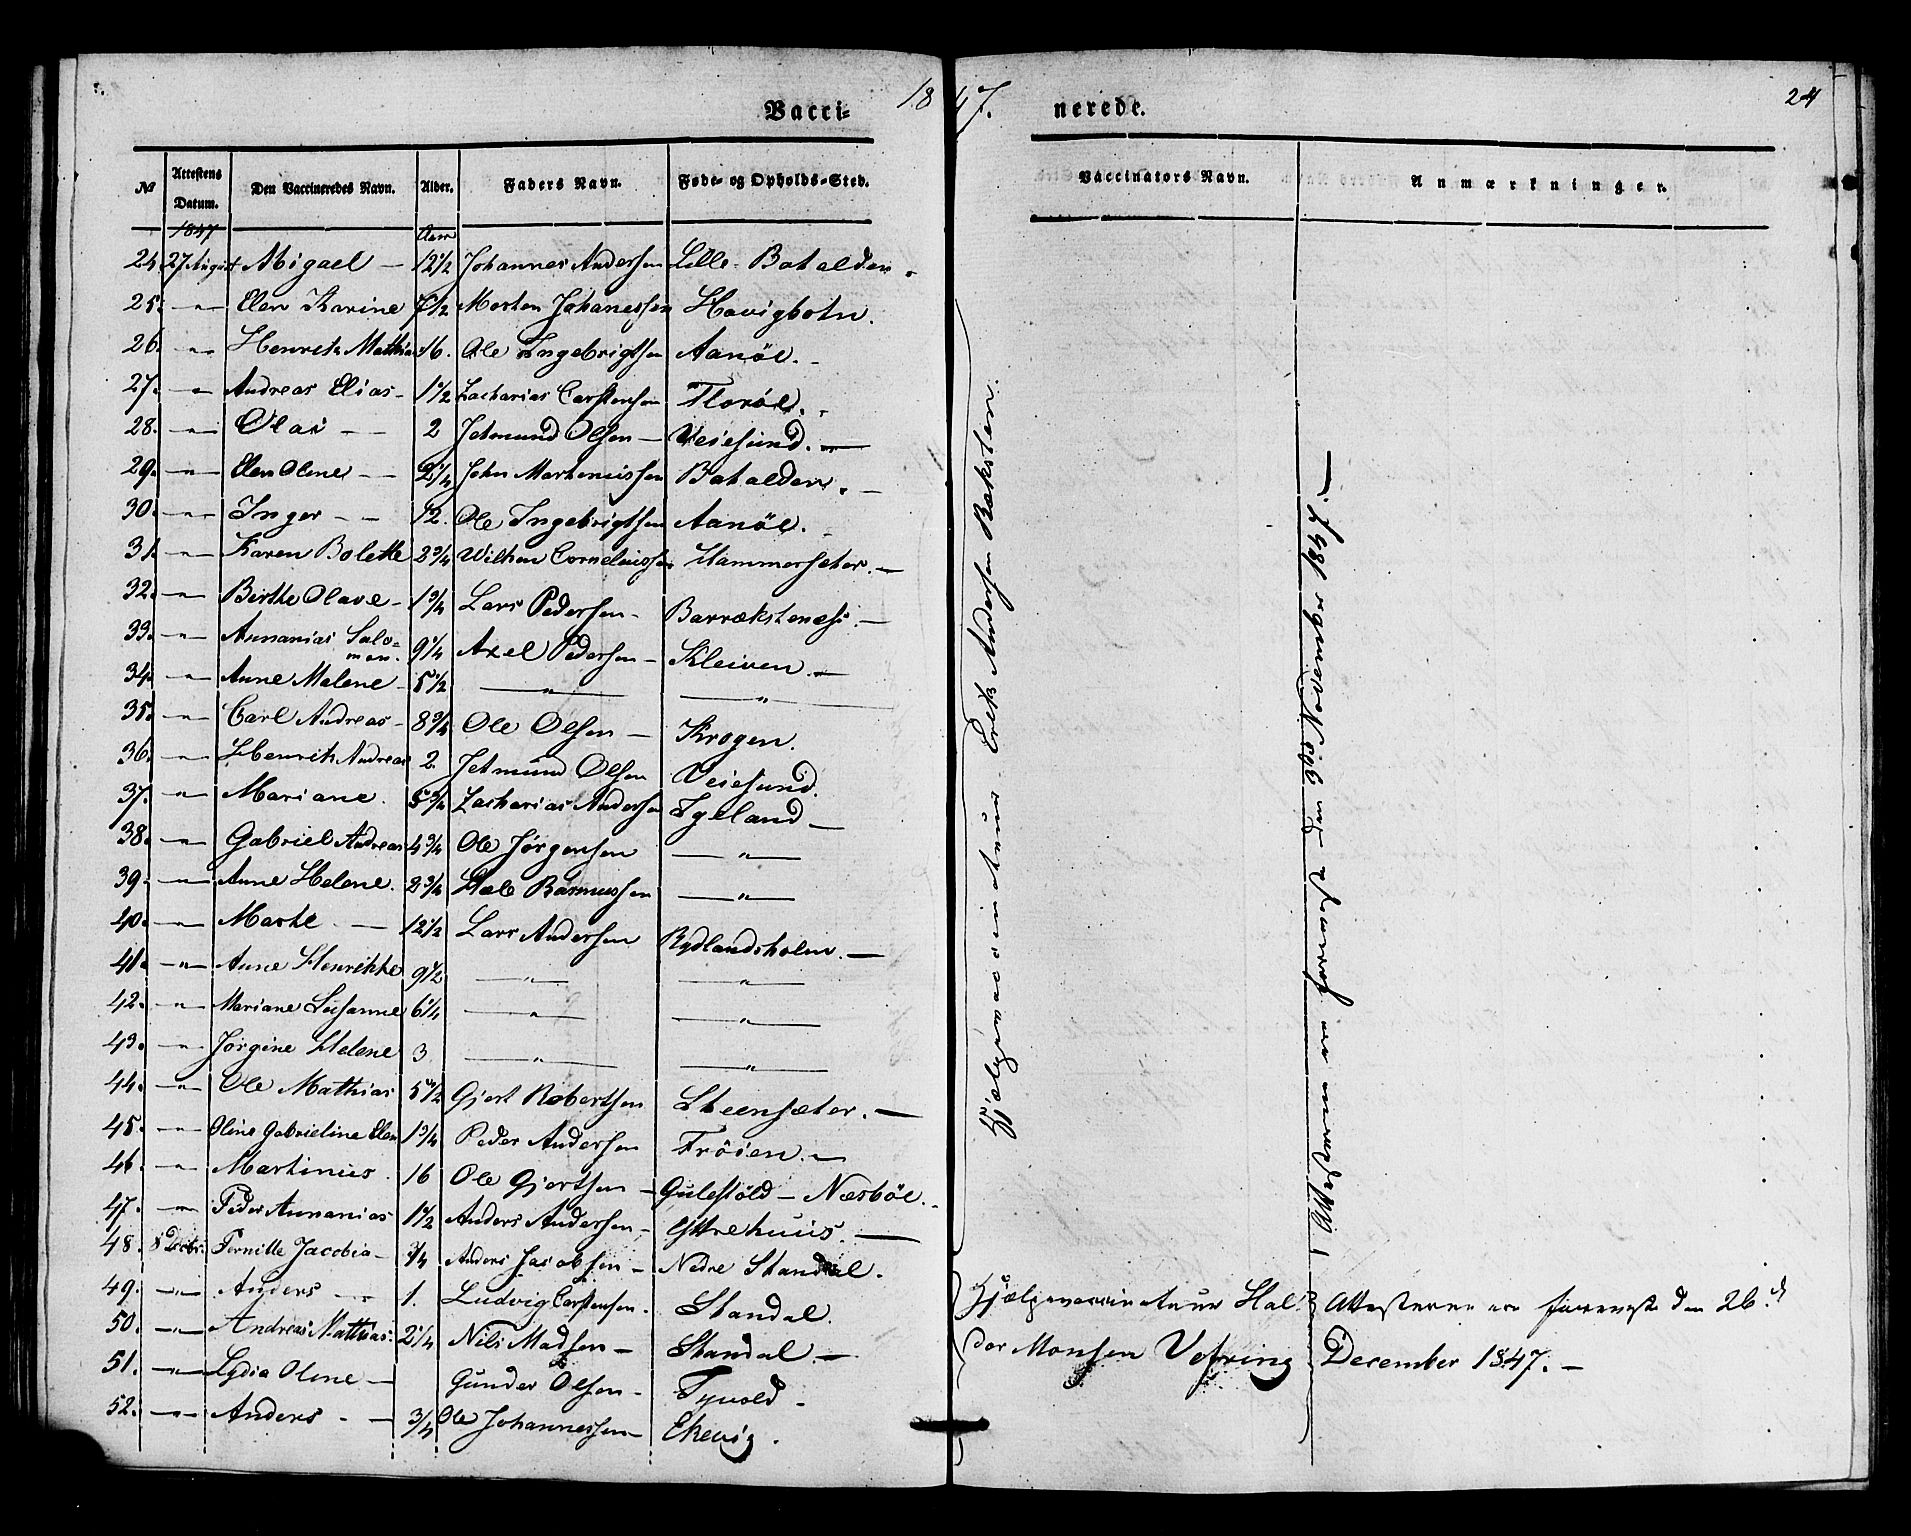 1847.
24
Vacci- nerede.
No Attestens Datum. Den Vaccineredes Navn. Alder. Faders Navn. Føde- og Opholds-Sted. Vaccinators Navn. Anmærkninger.
1847 Aar
24 27 August Abigael — 12 1/2 Johannes Andersen Lille Batalden.
25. —"— Elen Karine 7 1/2 Morten Johanessen Havigbotn.
26. —"— Henrik Mathias 16. Ole Ingebrigtsen Aanöe. -
27. —"— Andreas Elias - 1 1/2 Zacharias Carstensen Florøe.
28. —"— Olai - - 2 Jetmund Olsen — Veiesund. —
29. —"— Elen Oline - - 2 1/4 John Martenussen Batalden. -
30. —"— Inger - - 12. Ole Ingebrigtsen Aanöe.
31. —"— Karen Bolette 2 3/4 Wilhem Corneliussen Hammersæter. —
32. —"— Birthe Olave - 1 3/4 Lars Pedersen - Barrækstenæs. —
33. —"— Annanias Salo=
mon. 9 1/4 Axel Pedersen - Kleiven. —
34. —"— Anne Malene - 5 1/2 —"— —"—
35. —"— Carl Andreas - 8 3/4 Ole Olsen — Krogen.
36. —"— Henrik Andreas 2. Jetmund Olsen Veiesund.
37. —"— Mariane. 5 3/4 Zacharias Andersen Igeland —
38. —"— Gabriel Andreas 4 3/4 Ole Jørgensen —"—
39. —"— Anne Helene. 2 3/4 Rasmussen —"—
40. —"— Marthe - — 12 1/2 Lars Andersen Rydlandsholm. —
41. —"— Anne Henrikke 9 1/2 —"— —"—
42. —"— Mariane Susanne 6 1/4 —"— —"—
43. —"— Jørgine Helene 3 —"— —"—
44. —"— Ole Mathias 5 1/2 Gjert Robertsen Steensæter. —
45. —"— Oline Gabrieline Elen 1 3/4 Peder Andersen Frôien. —
46. —"— Martinus. 16 Ole Gjertsen — Gulestöld — Næsböe. -
47. —"— Peder Annanias 1 1/2 Anders Andersen - Yttrehuus. —
48. 8 Decbr. Pernille Jacobia - 3/4 Anders Jacobsen - Nedre Standal.
49. —"— Anders - - 1. Ludvig Carstensen. Standal.
50. —"— Andreas Mathias. 2 1/4 Nils Madsen — Standal. —
51. —"— Lydia Oline — Gunder Olsen - Tyvold -
52. —"— Anders - - 3/4 Ole Johannessen Ekevig.
Hjælpevaccinateur Erik Andersen Ræksten.
Attesterne ere forevist den 9de November 1847. —
Hjælpevaccinateur Hal=
dor Monsen Vefring
Attesterne ere forevist den 26.d
December 1847. —